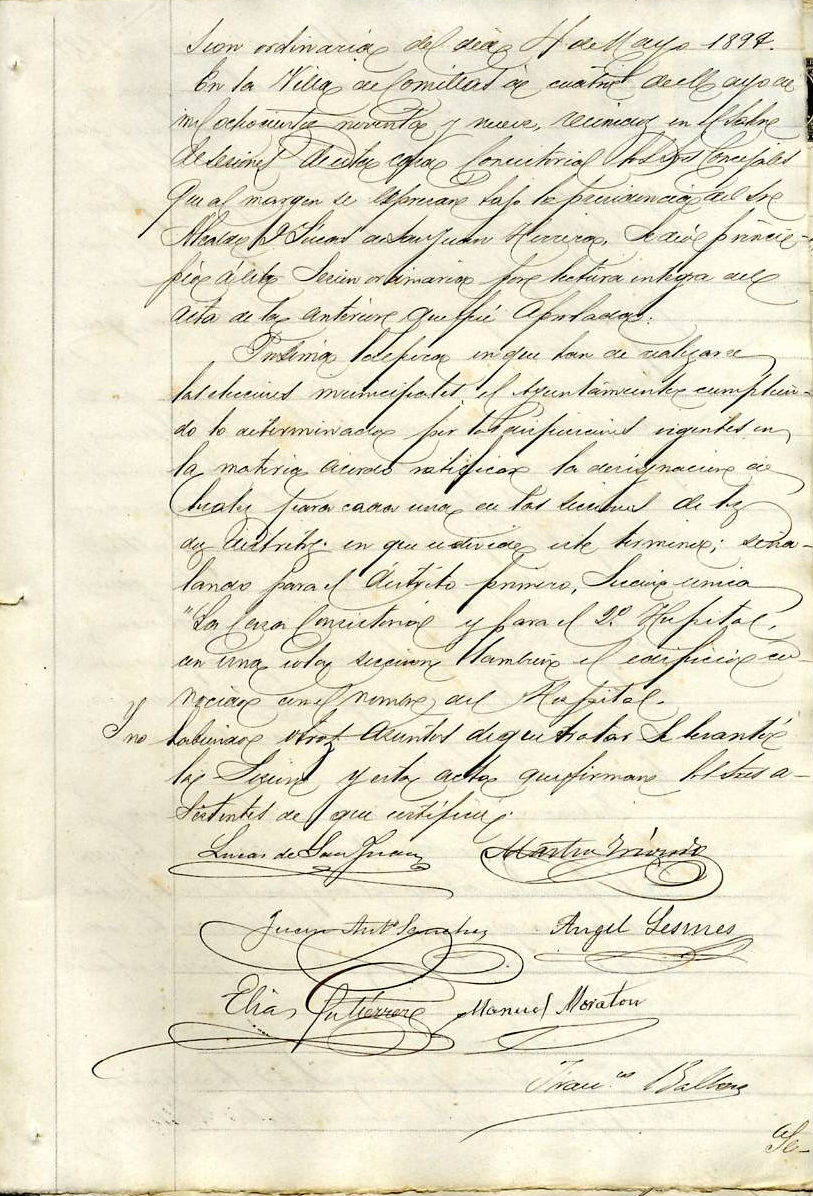 sion ordinaria del dia 4 de Mayo 1899.
En la Villa de Comillas á cuatro de Mayo de
mil ochocientos noventa y nueve, reunidos en el Salon
de sesiones de esta casa Consistorial los Sres Concejales
que al margen se espresan bajo la presidencia del Sr
Alcalde D. Lucas de San Juan Herrera, se dió princi-
pio á esta Sesion ordinaria por lectura integra del
acta de la anterior que fué aprobada.
Proxima la época en que han de realizarse
las elecciones municipales, el Ayuntamiento cumplien-
do lo determinado por las disposiciones vigentes en
la materia acordó ratificar la designacion de
locales para cada una de las secciones de los
dos distritos en que se divide este termino; seña-
lando para el distrito primero, Seccion unica
"La Casa Consistorial y para el 2º Hospital,
con una sola seccion tambien el edificio co-
nocido con el nombre del Hospital.
Y no habiendo otros asuntos de que tratar se levantó
la Sesion y esta acta que firman los Sres a-
sistentes de que certifico.
Lucas de San Juan
Juan Antº Sanchez Angel Lesmes
Elias Gutiérrez Manuel Moraton
Franco Balbas
Se-